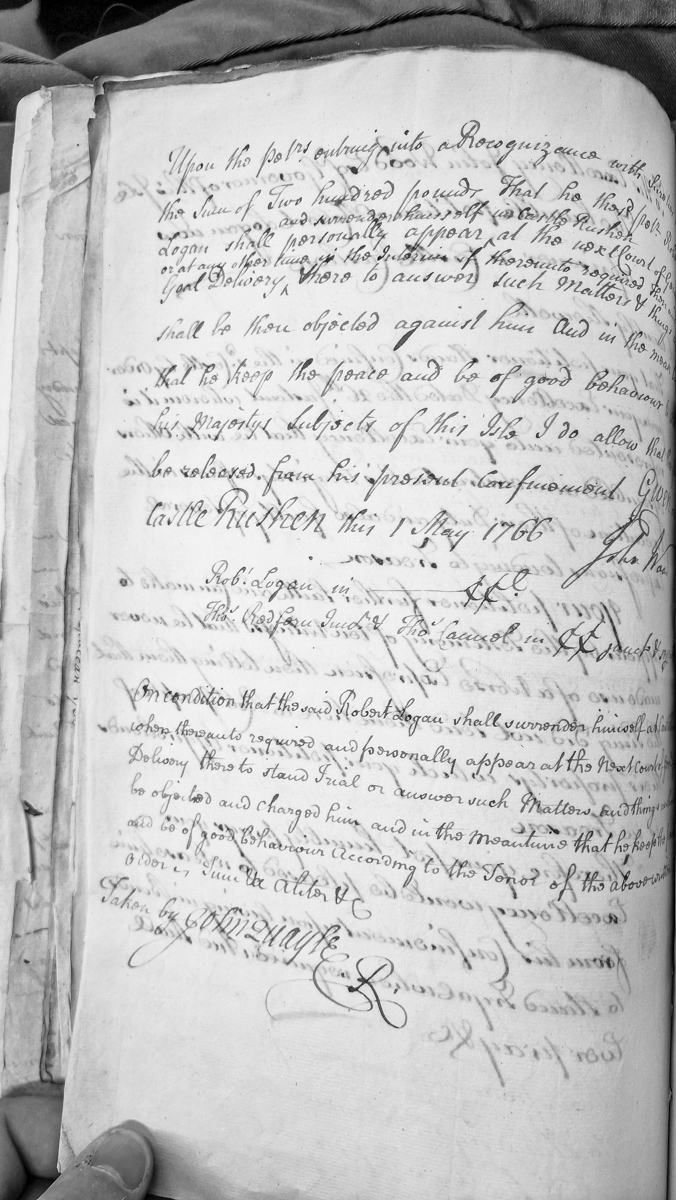 Upon the petrs entring into a Recognizance with
the Sum of Two hundred pounds That he the sd petr
and surrender himself in Castle Rushen
Logan shall personally appear at the next Court of
or at any other time in the Interim if thereunto required
Goal Delivery ^ there to answer such Matters & things
shall be then objected against him And in the mean
that he keep the peace and be of good behaviour
his Majestys Subjects of this Isle I do allow that
be released from his present Confinement Given
Castle Rushen this 1 May 1766
John Woo
Robt Logan in
Thos Redfern Junr & Thos Cannel in
On condition that the said Robert Logan shall surrender himself at
when thereunto required and personally appear at the Next Court of
Delivery there to stand Trial or answer such Matters and things
be objected and charged him and in the meantime that he keep the
and be of good behaviour According to the Tenor of the above written
Order is Simul & Aliter &c
Taken by John Quayle
CR.